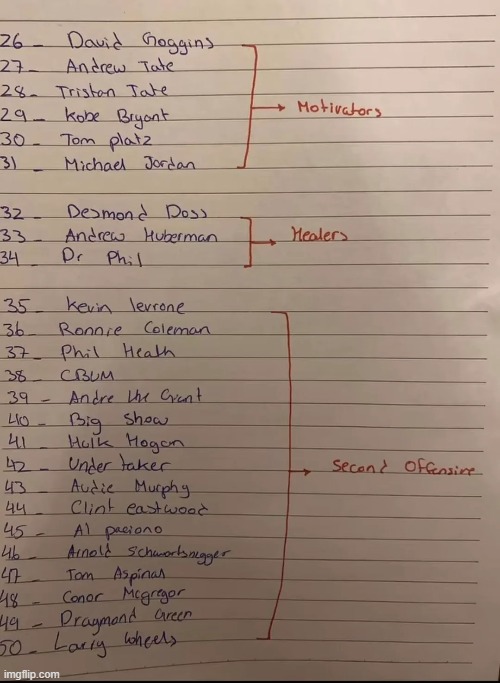 26 - David Goggins
27 - Andrew Tate
28 - Tristan Tate
29 - Kobe Bryant
→ Motivators
30 - Tom platz
31 - Michael Jordan
32 - Desmond Doss
33 - Andrew Huberman
→ Healers
34 - Dr Phil
35 - Kevin levrone
36 - Ronnie Coleman
37 - Phil Heath
38 - CBUM
39 - Andre the Giant
40 - Big Show
41 - Hulk Hogan
42 - Under taker
→ Second Offensive
43 - Audie Murphy
44 - Clint eastwood
45 - Al paciono
46 - Arnold Schwartsnegger
47 - Tom Aspinal
48 - Conor Mcgregor
49 - Draymond Green
50 - Larry Wheels
imgflip.com